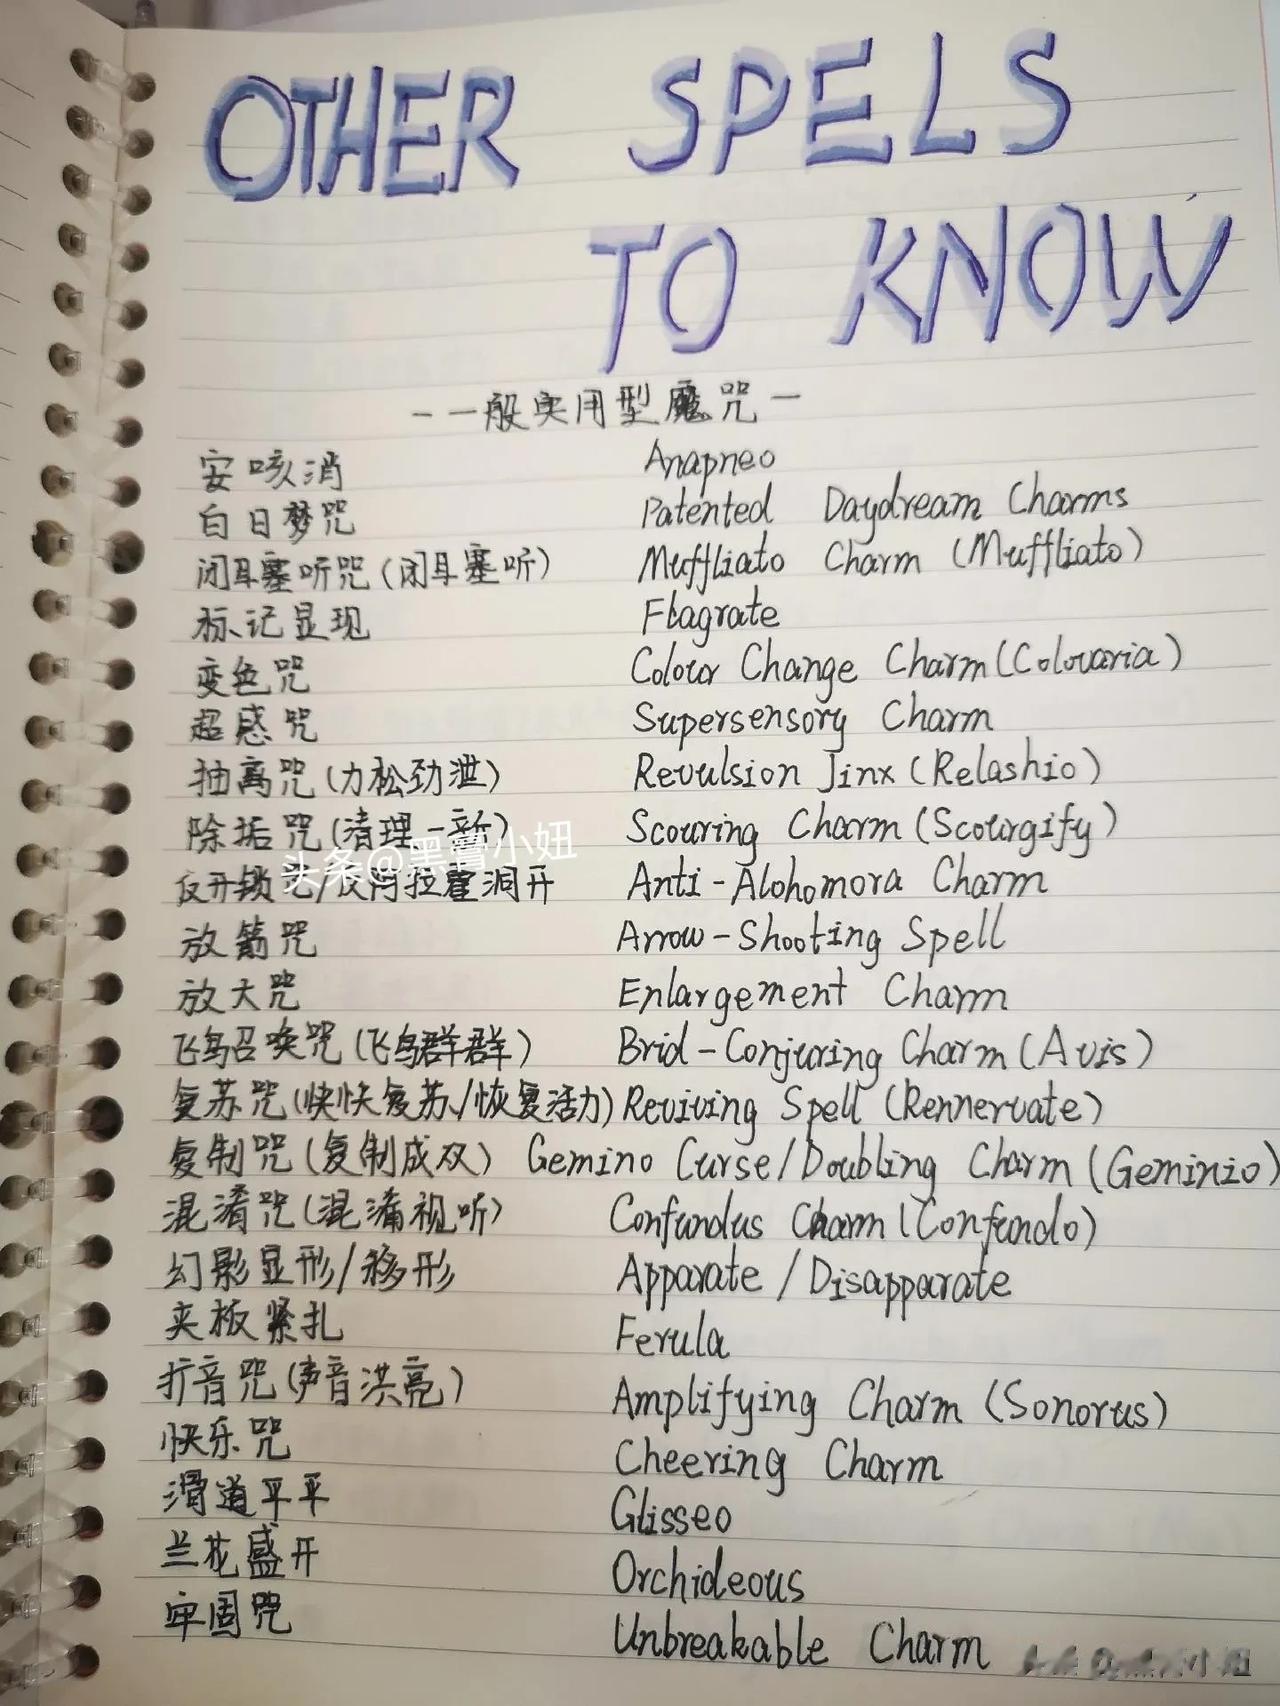 OTHER SPELS
TO KNOW
－一般实用型魔咒－
安咳消 Anapneo
白日梦咒 Patented Daydream Charms
闭耳塞听咒(闭耳塞听) Muffliato Charm (Muffliato)
标记显现 Flagrate
变色咒 Colour Change Charm(Colovaria)
超感咒 Supersensory Charm
抽离咒(力松劲泄) Revulsion Jinx (Relashio)
除垢咒(清理一新) Scouring Charm (Scourgify)
头条@黑曹小妞
反开锁咒/反阿拉霍洞开 Anti-Alohomora Charm
放箭咒 Arrow-Shooting Spell
放大咒 Enlargement Charm
飞鸟召唤咒(飞鸟群群) Brid-Conjuring Charm (Avis)
复苏咒(快快复苏/恢复活力) Reviving Spell (Rennervate)
复制咒(复制成双) Gemino Curse/Doubling Charm (Geminio)
混淆咒(混淆视听) Confundus Charm (Confundo)
幻影显形/移形 Apparate/Disapparate
夹板紧扎 Ferula
扩音咒(声音洪亮) Amplifying Charm (Sonorus)
快乐咒 Cheering Charm
滑道平平 Glisseo
兰花盛开 Orchideous
牢固咒 Unbreakable Charm
小妞